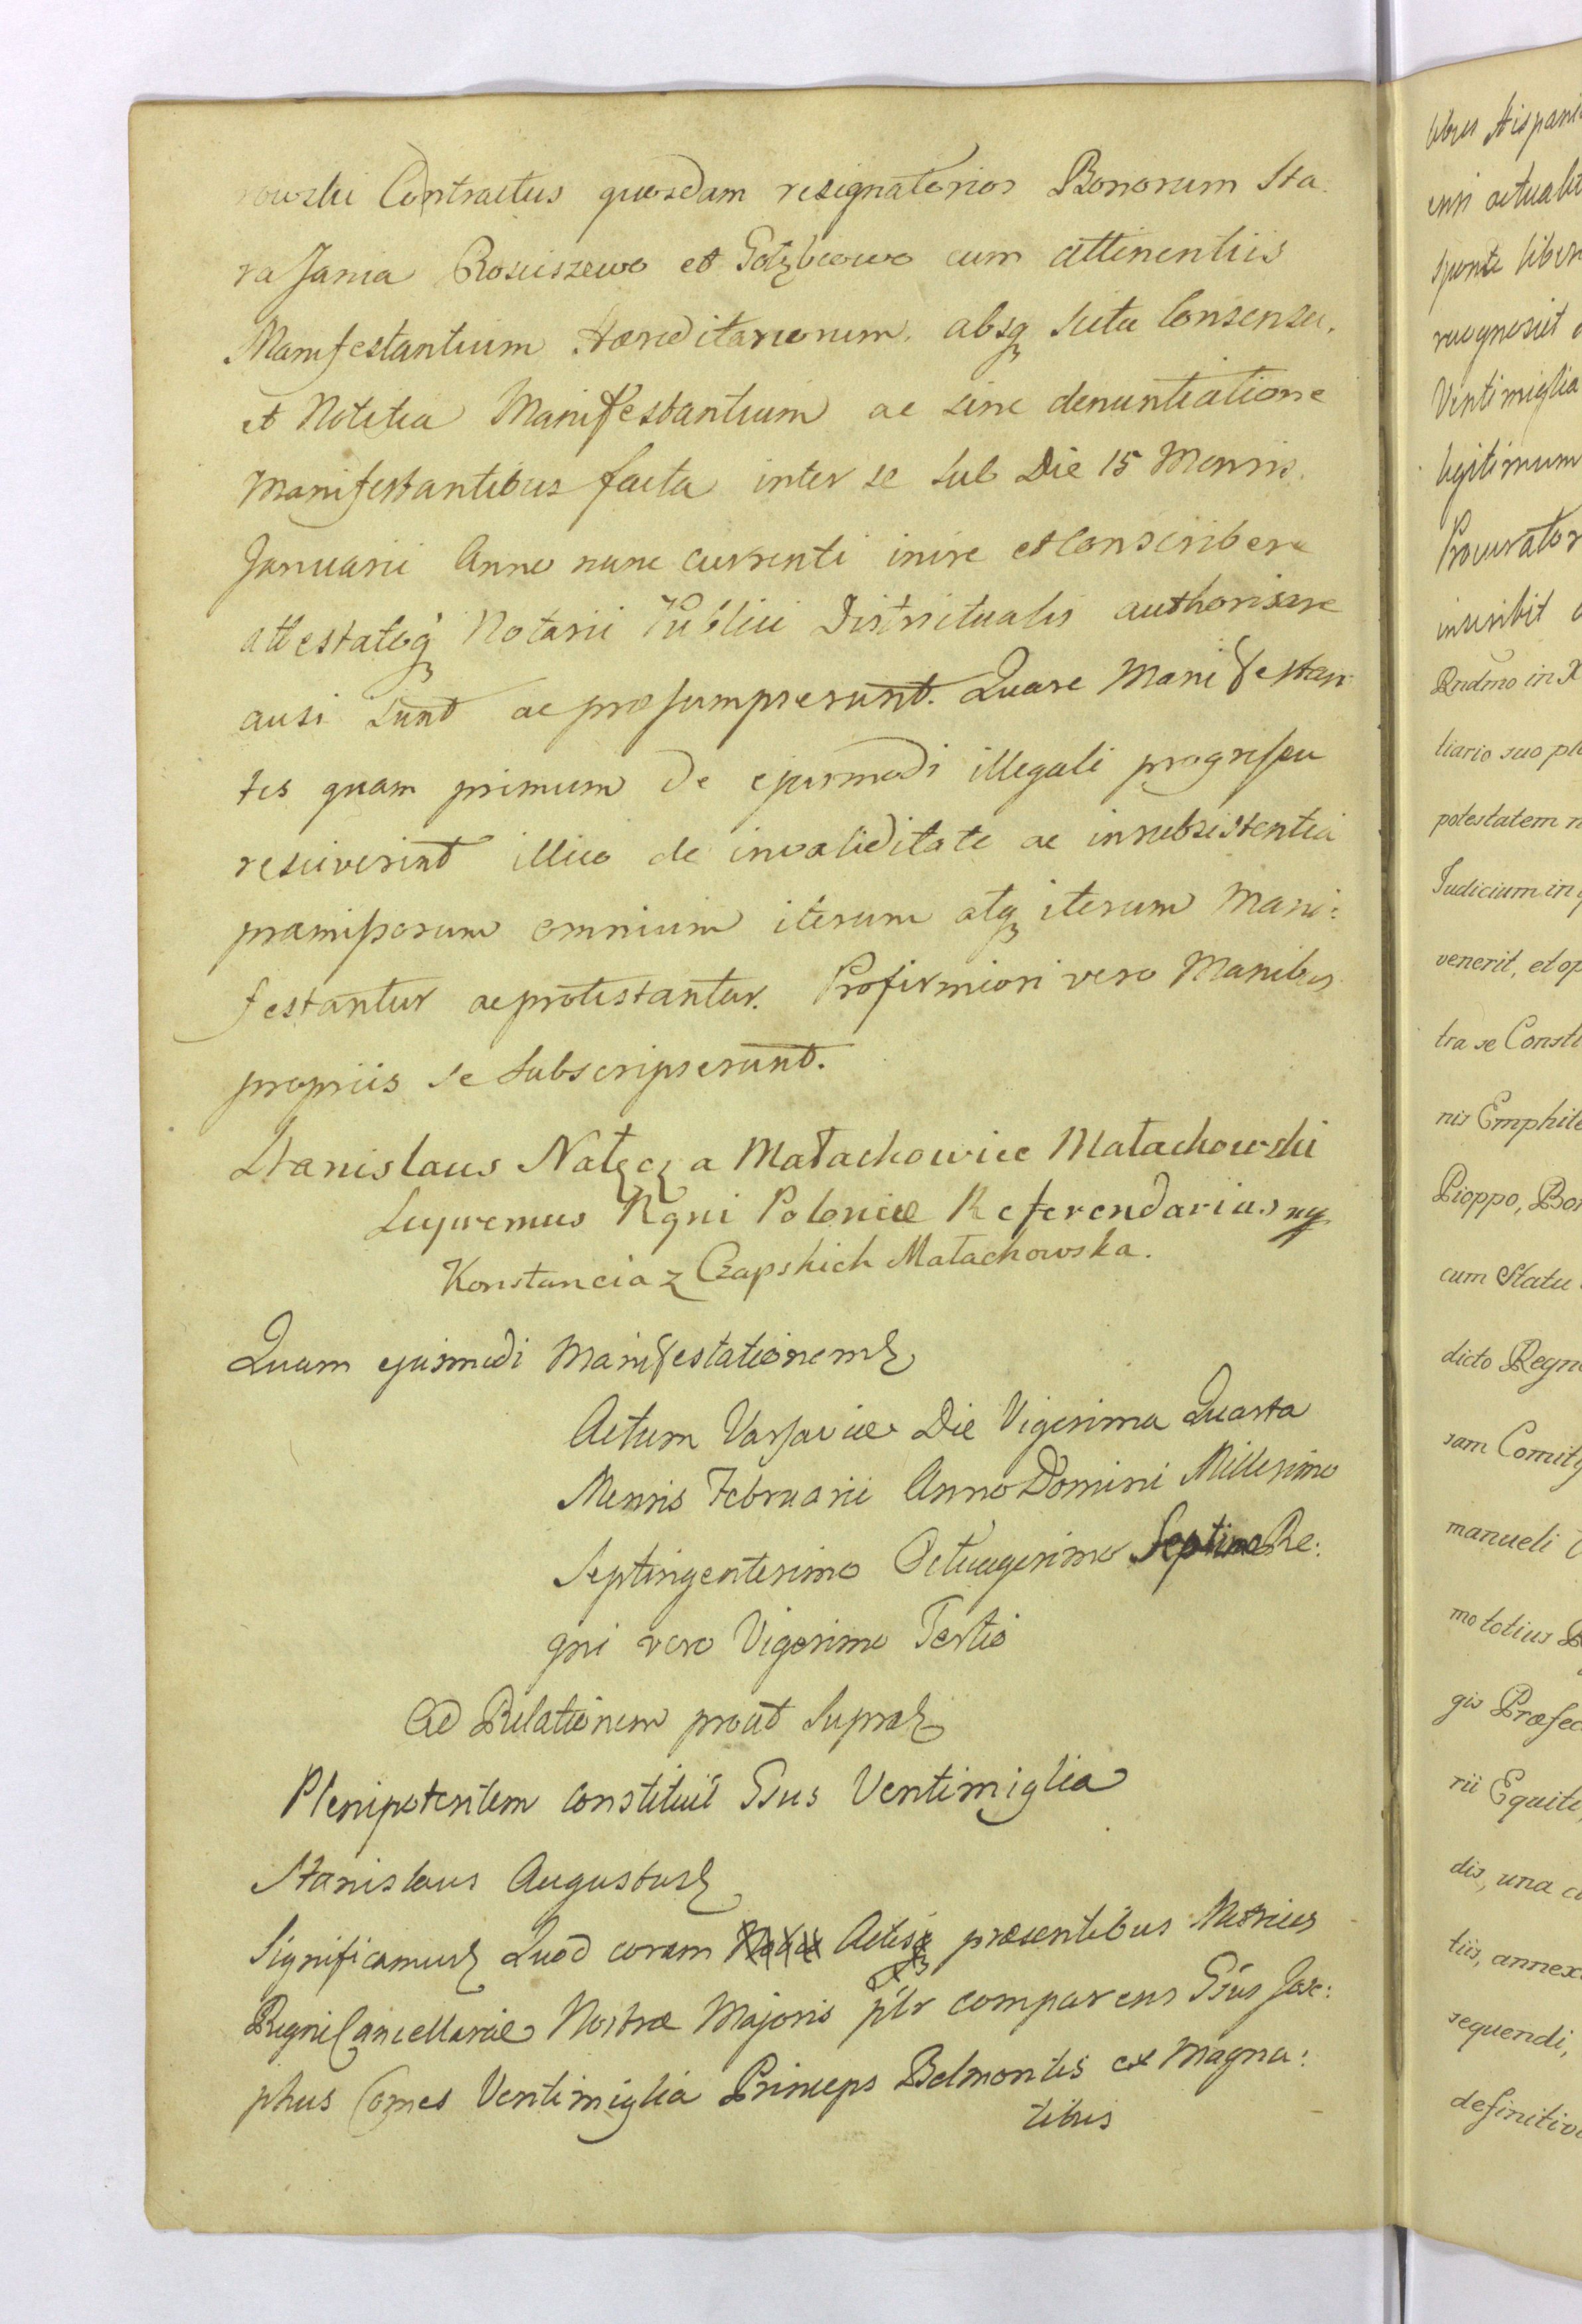 rowski Contractus quosdam resignatorios Bonorum Sta
ra Jania Rosciszewo et Gołębiewo cum attinentiis
Manifestantium Hæreditariorum, absq Scitu Consensu,
et Notitia Manifestantium ac sine denuntiatione
Manifestantibus facta inter se sub Die 15 Mensis
Januarii Anno nunc currenti inire et Conscribere
attestatoq Notarii Publici Districtualis authorisare
ausi sunt ac præsumpserunt. Quare Manifestan
tes quam primum de ejusmodi illegali progressu
resciverint illico de invaliditate ac insubsistentia
præmissorum omnium iterum atq iterum Mani:
festantur ac protestantur. Pro firmiori vero Manibus
propriis se Subscripserunt.
Stanislaus Nałęcz a Małachowice Małachowski
Supremus Rgni Poloniæ Referendarius mp
Konstancia z Czapskich Małachowska.
Quam ejusmodi Manifestationem
Actum Varsaviæ Die Vigesima Quarta
Mensis Februarii Anno Domini Millesimo
Septingentesimo Octuagesimo Septimo Re:
gni vero Vigesimo Tertio
Ad Relationem prout Supra
Plenipotentem constituit Gsus Ventimiglia
Stanislaus Augustus
Significamus Quod coram Actis præsentibus Metrices
Regni Cancellariæ Nostræ Majoris plr comparens Gsus Jose:
phus Comes Ventimiglia Princeps Belmontis ex Magna:
tibus
libus Hispani
ensi actuali
sponte liber
recognovit
Ventimiglia
legitimum
Procurator
inscribit
Rndmo in X
liario suo ple
potestatem n
Judicium in
venerit, et op
tra se Consti
nis Emphite
Pioppo, Bon
cum Statu
dicto Regno
sam Comit
manueli
mo totius R
gis Præfec
rii Equit
dis, una c
tiis, annex
sequendi,
definitiv